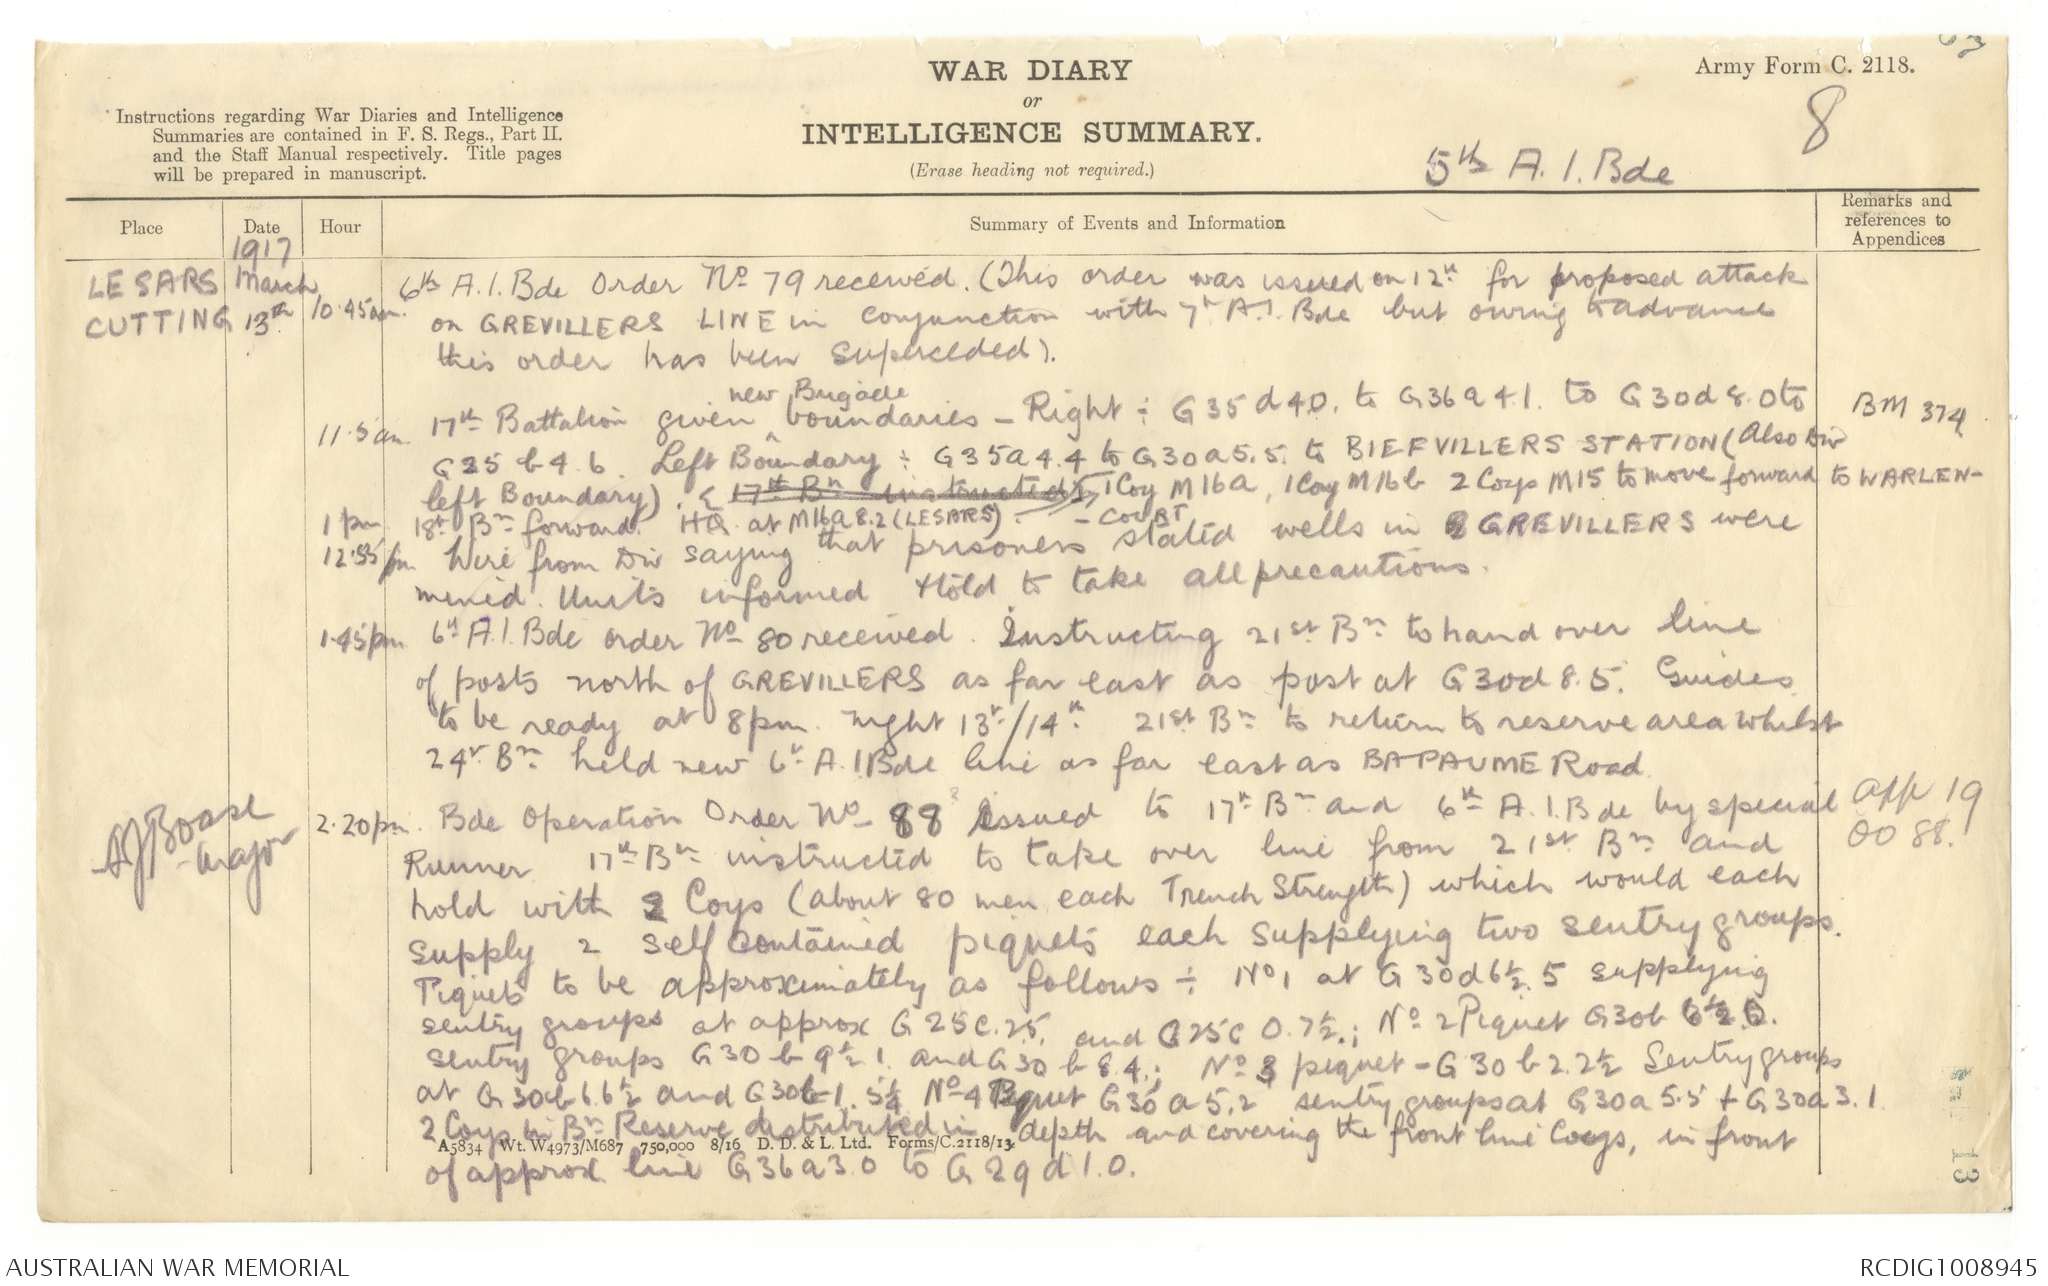 WAR DIARY
or
INTELLIGENCE SUMMARY.
(Erase heading not required.)
Army Form C. 2118.
8
Instructions regarding War Diaries and Intelligence
Summaries are contained in F. S. Regs., Part II.
and the Staff Manual respectively. Title pages
will be prepared in manuscript.
5th A.I.Bde
Place
Date
Hour
Summary of Events and Information
Remarks and
references to
Appendices
1917
LE SARS March
CUTTING 13th 10.45am. 6th A.I.Bde Order No 79 received. (This order was issued on 12th for proposed attack
on GREVILLERS LINE in conjunction with 7th A.I.Bde but owing to advance
this order has been superceded).
new Brigade
11.5am. 17th Battalion given boundaries - Right ÷ G35d4.0. to G36a4.1. to G30d8.0 to BM 374
G25b4.6. Left Boundary ÷ G35a4.4 to G30a5.5. to BIEFVILLERS STATION (Also Div
left Boundary). 17th Bn instructed 1 Coy M16a, 1 Coy M16b 2 Coys M15 to move forward to WARLEN-
1pm 18th Bn forward. HQ at M16a8.2 (LESARS). - COURT
12.55pm Wire from Div saying that prisoners stated wells in GREVILLERS were
mined. Units informed & told to take all precautions.
1.45pm 6th A.I.Bde order No 80 received. Instructing 21st Bn to hand over line
of posts north of GREVILLERS as far east as post at G30d8.5. Guides
to be ready at 8pm. night 13th/14th 21st Bn to return to reserve area whilst
24th Bn held new 6th A.I Bde line as far east as BAPAUME Road
2.20pm. Bde Operation Order No 88 issued to 17th Bn and 6th A.I.Bde by special App 19
Runner 17th Bn instructed to take over line from 21st Bn and OO 88.
AJBoase
Major
hold with 2 Coys (about 80 men each Trench Strength) which would each
supply 2 self contained piquets each supplying two sentry groups.
Piquets to be approximately as follows ÷ No 1 at G30d6½.5 supplying
sentry groups at approx G25c.2.5. and G25c 0.7½.; No 2 Piquet G30b 6½.0.
sentry groups G30b9½.1. and G30b8.4.; No 3 piquet - G30b2.2½ Sentry groups
at G30b6.6½ and G30b1.5¼ No 4 Piquet G30a5.2 sentry groups at G30a5.5 + G30a3.1
2 Coys in Bn Reserve distributed in depth and covering the front line Coys, in front
A5834 Wt. W4973/M687 750,000 8/16 D. D. & L. Ltd. Forms/C.2118/13.
of approx line G36a3.0 to G29d1.0.
13
AUSTRALIAN WAR MEMORIAL
RCDIG1008945